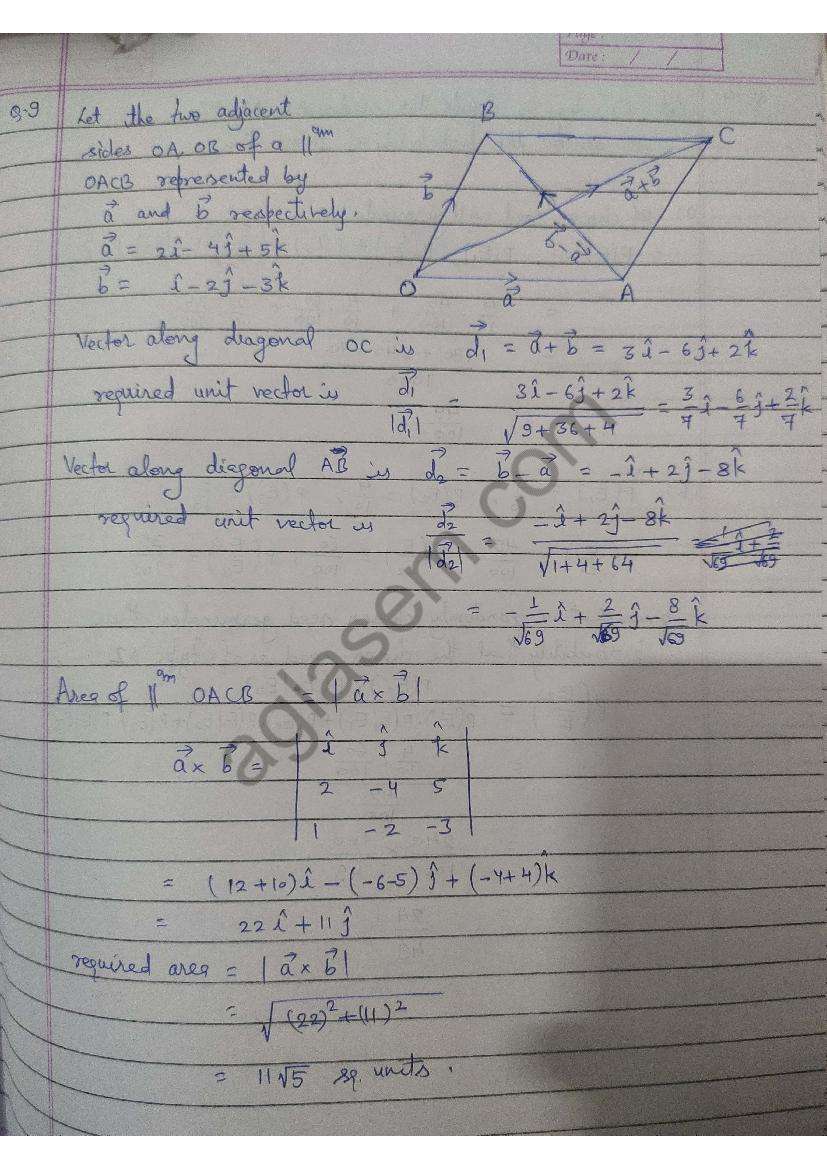 Page:
Date: / /
Q-9 Let the two adjacent
sides OA, OB of a ||gm
OACB represented by
a⃗ and b⃗ respectively.
a⃗ = 2î - 4ĵ + 5k̂
b⃗ = î - 2ĵ - 3k̂
B
C
b⃗
a⃗+b⃗
b⃗-a⃗
O
a⃗
A
Vector along diagonal OC is d⃗₁ = a⃗ + b⃗ = 3î - 6ĵ + 2k̂
required unit vector is d⃗₁/|d⃗₁| = (3î - 6ĵ + 2k̂)/√(9+36+4) = 3/7 î - 6/7 ĵ + 2/7 k̂
Vector along diagonal AB⃗ is d⃗₂ = b⃗ - a⃗ = -î + 2ĵ - 8k̂
required unit vector is d⃗₂/|d⃗₂| = (-î + 2ĵ - 8k̂)/√(1+4+64)
= -1/√69 î + 2/√69 ĵ - 8/√69 k̂
Area of ||gm OACB = |a⃗ × b⃗|
a⃗ × b⃗ = | î ĵ k̂ |
2 -4 5
| 1 -2 -3 |
= (12+10)î - (-6-5)ĵ + (-4+4)k̂
= 22î + 11ĵ
required area = |a⃗ × b⃗|
= √((22)² + (11)²)
= 11√5 sq. units.
aglasem.com